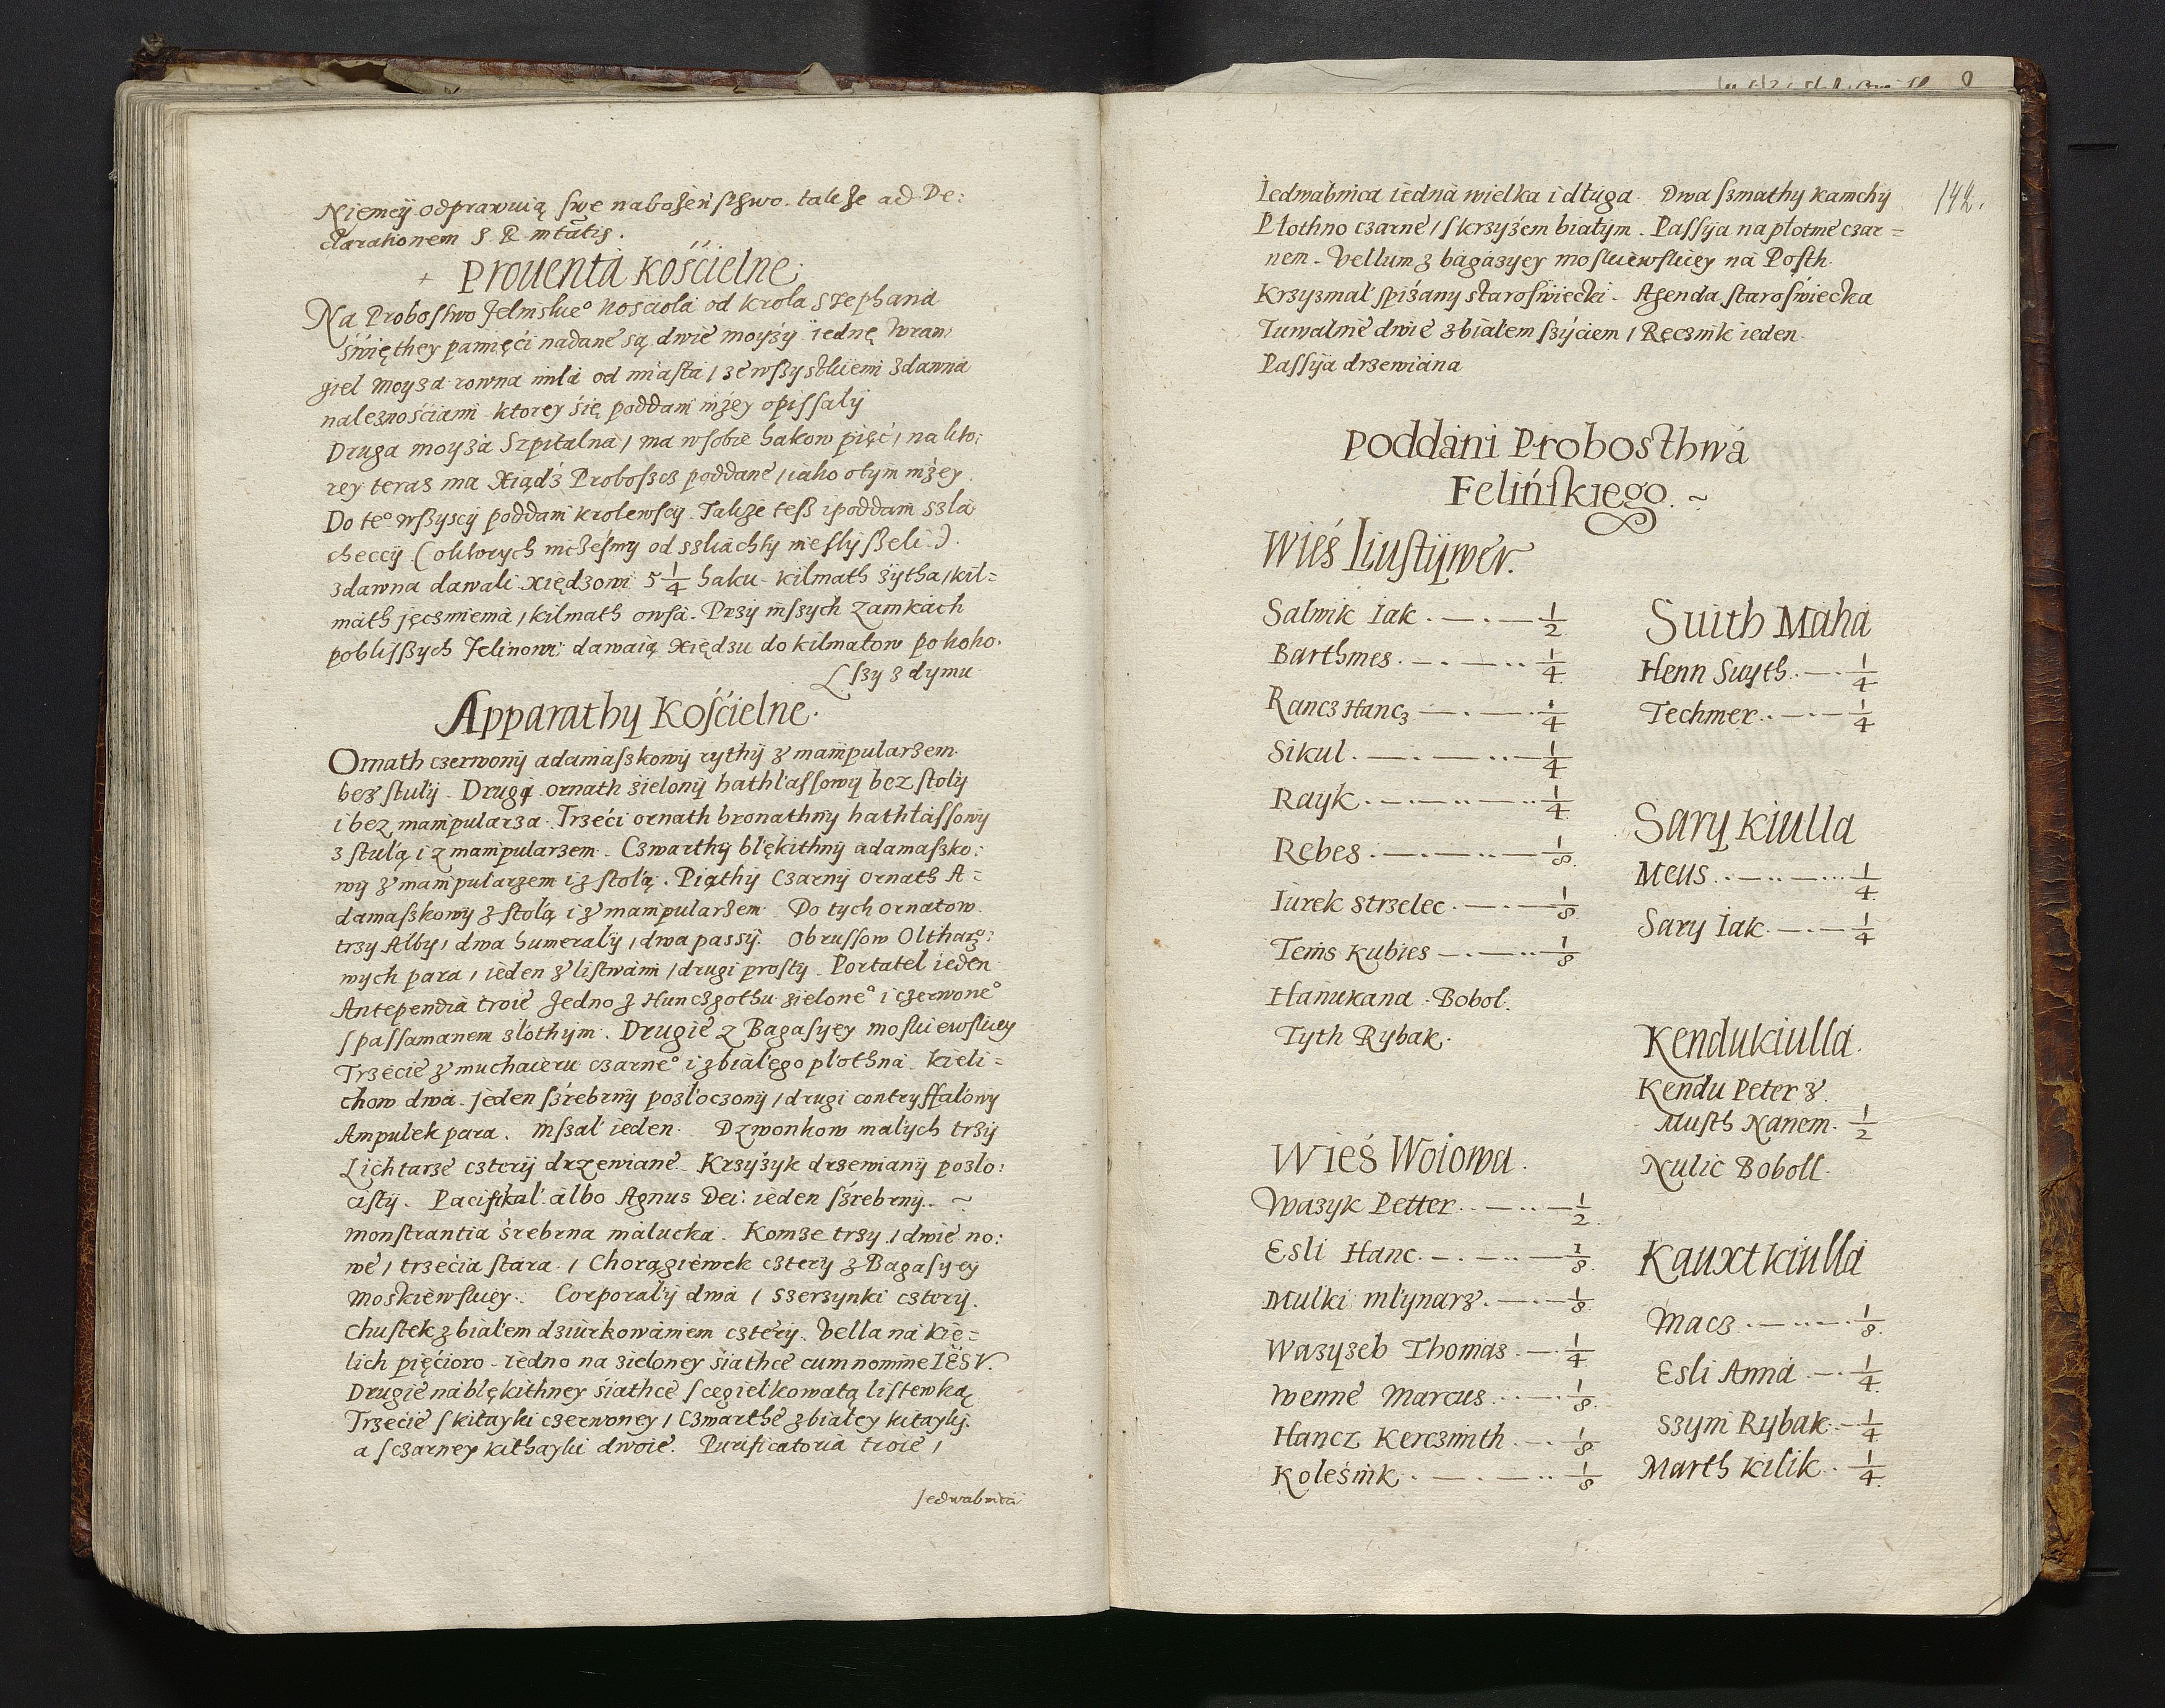 Niemcÿ odprawuią swe nabożeństhwo. także ad De:
clarationem S. R. mtatis.
+ Prouenta Kościelne.
Na Probostwo Felinskie° kościola od krola Stephana
Swięthey pamięći nadane są dwie moyży iednę Wran
giel moyza rowna mila od miasta / ze wszystkiemi zdawna
należnośćiami ktorey się poddani niżey opissaly
Druga moyza Szpitalna / ma w sobie hakow pięć / na kto:
rey teras ma Xiądź Proboszcz poddane / iako o tym niżey.
Do te° wszyscy poddani krolewscy. Także tesz i poddani szla
checcÿ (o ktorych niczesmy od szliachty nie slyszeli.)
zdawna dawali xiędzowi 5 1/4 haku kilmath żytha / kil=
math jęczmienia / kilmath owsa. Przy inszych Zamkach
pobliższych Felinowi dawaią xiędzu do kilmatow po koko.
szy z dymu
Apparathy Kościelne.
Ornath czerwonÿ adamaszkowÿ rythÿ z manipularzem
bez stulÿ. Drugi ornath zielonÿ hathlassowy bez stolÿ
i bez manipularza. Trzeći ornath bronathnÿ hathlassowy
z stulą i z manipularzem. Czwarthÿ blękithnÿ adamaszko:
wÿ z manipularzem i z stolą. Piąthÿ Czarnÿ Ornath A=
damaszkowÿ z stolą i z manipularzem. Do tych ornatow
trzy Alby / dwa humeralÿ / dwa passÿ. Obrussow Oltharzo:
wych para / ieden z listwami / drugi prostÿ. Portatel ieden
Antependia troie Jedno z Hunczgothu zielone° i czerwone°
s passamanem zlothym. Drugie z Bagasyey moskiewskiey
Trzecie z muchaieru czarne° i z bialego plothna. Kieli=
chow dwa. jeden szrebrnÿ pozloczonÿ / drugi contryffalowy
Ampulek para. Mszal ieden. Dzwonkow malych trzÿ
Lichtarze czterÿ drzewiane. Krzyżyk drzewianÿ pozlo:
cistÿ. Pacifikal albo Agnus Dei: ieden szrebrnÿ. ~
monstrantia śrebrna malucka. Komze trzy / dwie no:
we / trzecia stara / Chorągiewek cztery z Bagasyey
Moskiewskiey. Corporalÿ dwa / Szerzynki czterÿ.
Chustek z bialem dziurkowaniem cztery. Vella na kie=
lich pięćioro. iedno na zieloney siathce cum nomine IESV.
Drugie na blękithney siathce s cegielkowatą listewką
Trzecie s kitayki czerwoney / Czwarthe z bialey kitayki.
a s czarney kithayki dwoie. Purificatoria troie /
Jedwabnica
142.
Iedwabnica iedna wielka i dluga. Dwa szmathy kamchÿ
Plothno czarne / s krzyżem bialym. Passÿa na plotnie czar=
nem. Vellum z bagazyey moskiewskiey na Posth.
Krzyzmal spiżany staroświecki. Agenda staroświecka
Tuwalnie dwie z bialem szyciem / Ręcznik ieden.
Passÿa drzewiana
Poddani Probosthwa
Felińskiego. ~
Wieś Liustÿwer.
Salnik Iak 1/2
Barthmes 1/4
Rancz Hancz 1/4
Sikul 1/4
Rayk 1/4
Rebes 1/8
Iurek Strzelec 1/8
Tenis Kubies 1/8
Hanukana Bobol.
Tyth Rybak.
Wieś Woiowa.
Wazyk Petter 1/2
Esli Hanc 1/8
Mulki mlynarz 1/8
Wazyzeb Thomas 1/4
Wenne Marcus 1/8
Hancz Kerczmith 1/8
Koleśnik 1/8
Suith Maha
Henn Suyth 1/4
Techmer 1/4
Sary Kiulla
Meus 1/4
Sary Iak 1/4
Kendukiulla.
Kendu Peter z
Musth Nanem 1/2
Nulic Boboll.
Kauxtkiulla
Macz 1/8
Esli Anna 1/4
Szym Rybak 1/4
Marth Kilik 1/4